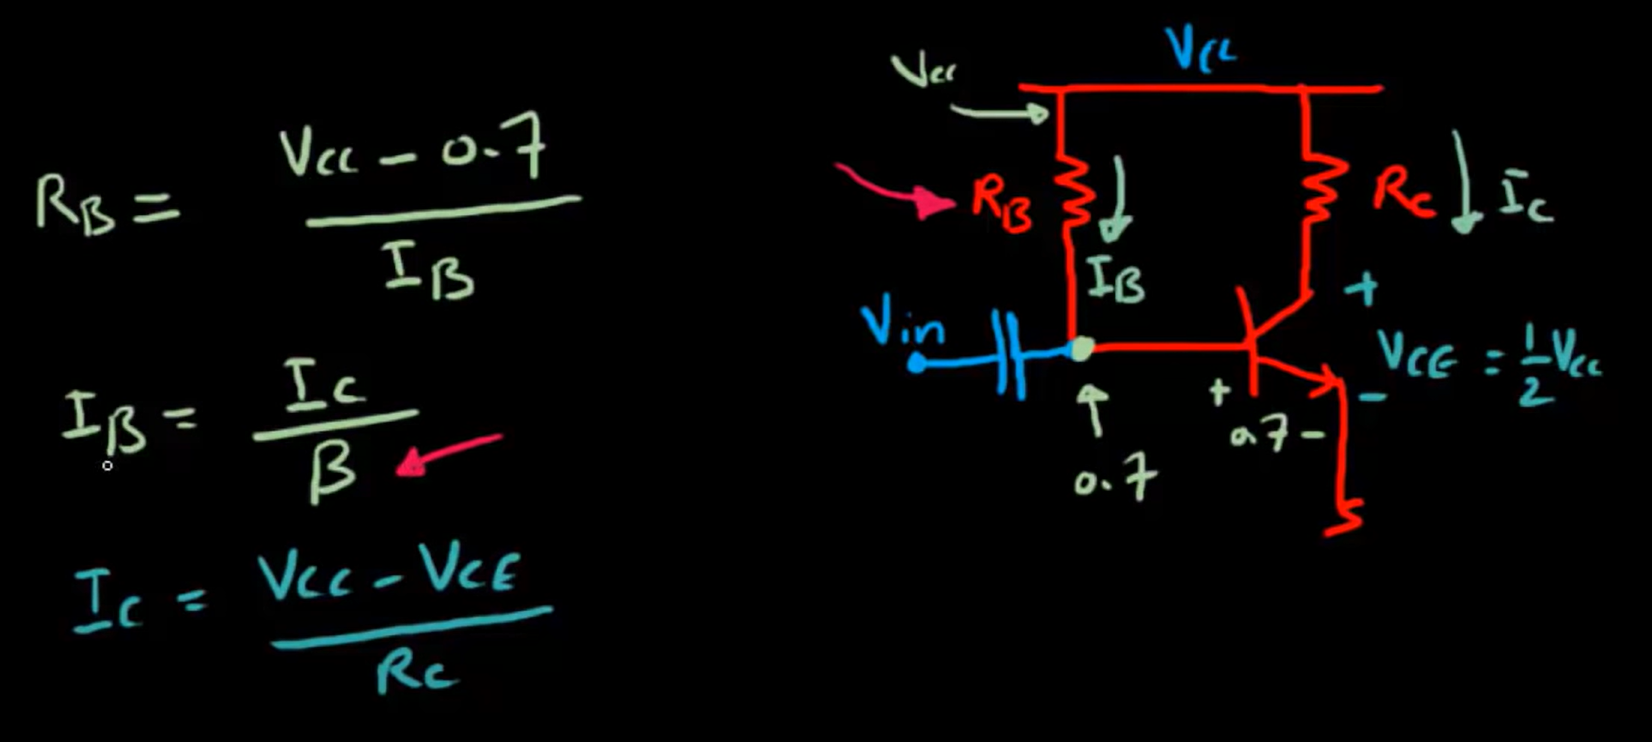 RB = VCC - 0.7
IB
IB = IC
β
IC = VCC - VCE
RC
VCC
Vcc
RB
IB
RC
IC
Vin
+
VCE = 1/2 VCC
-
+
0.7 -
0.7